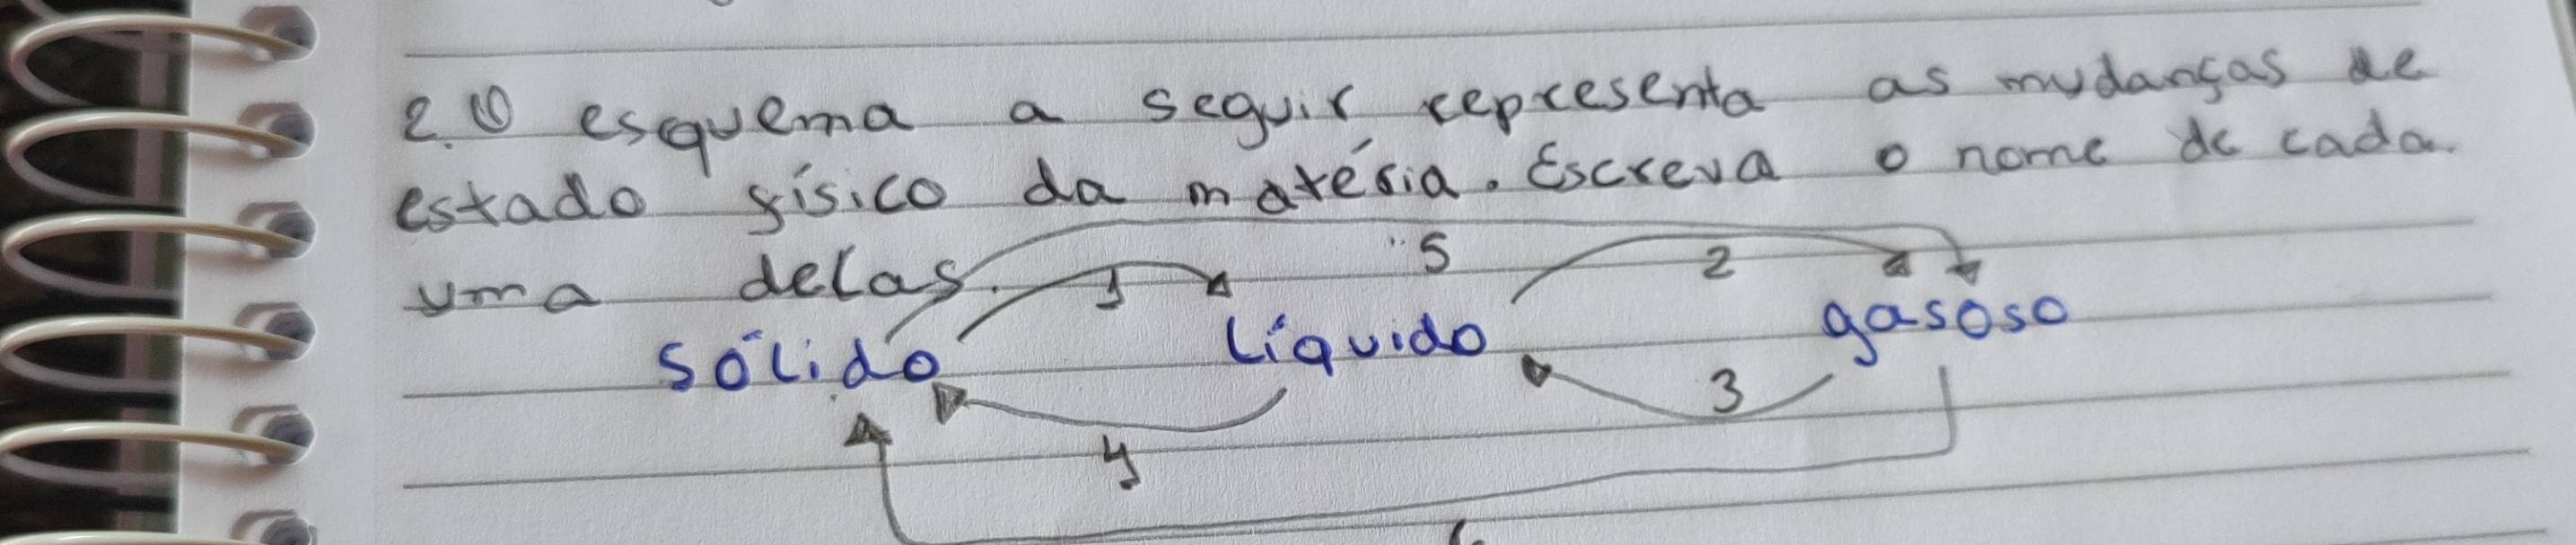 2. O esquema a seguir representa as mudanças de
estado físico da matéria. Escreva o nome de cada
uma delas.
5
1
2
sólido líquido gasoso
3
4